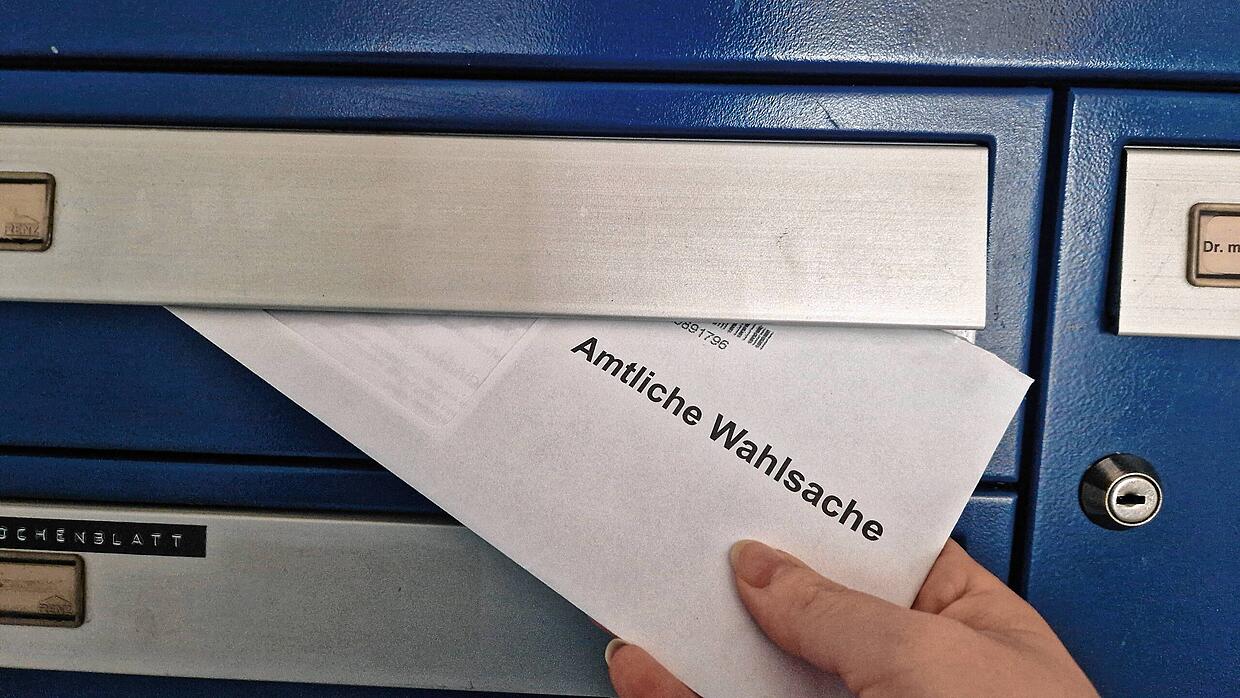 RENZ
Dr. m
0891796
Amtliche Wahlsache
OCHENBLATT
RENZ